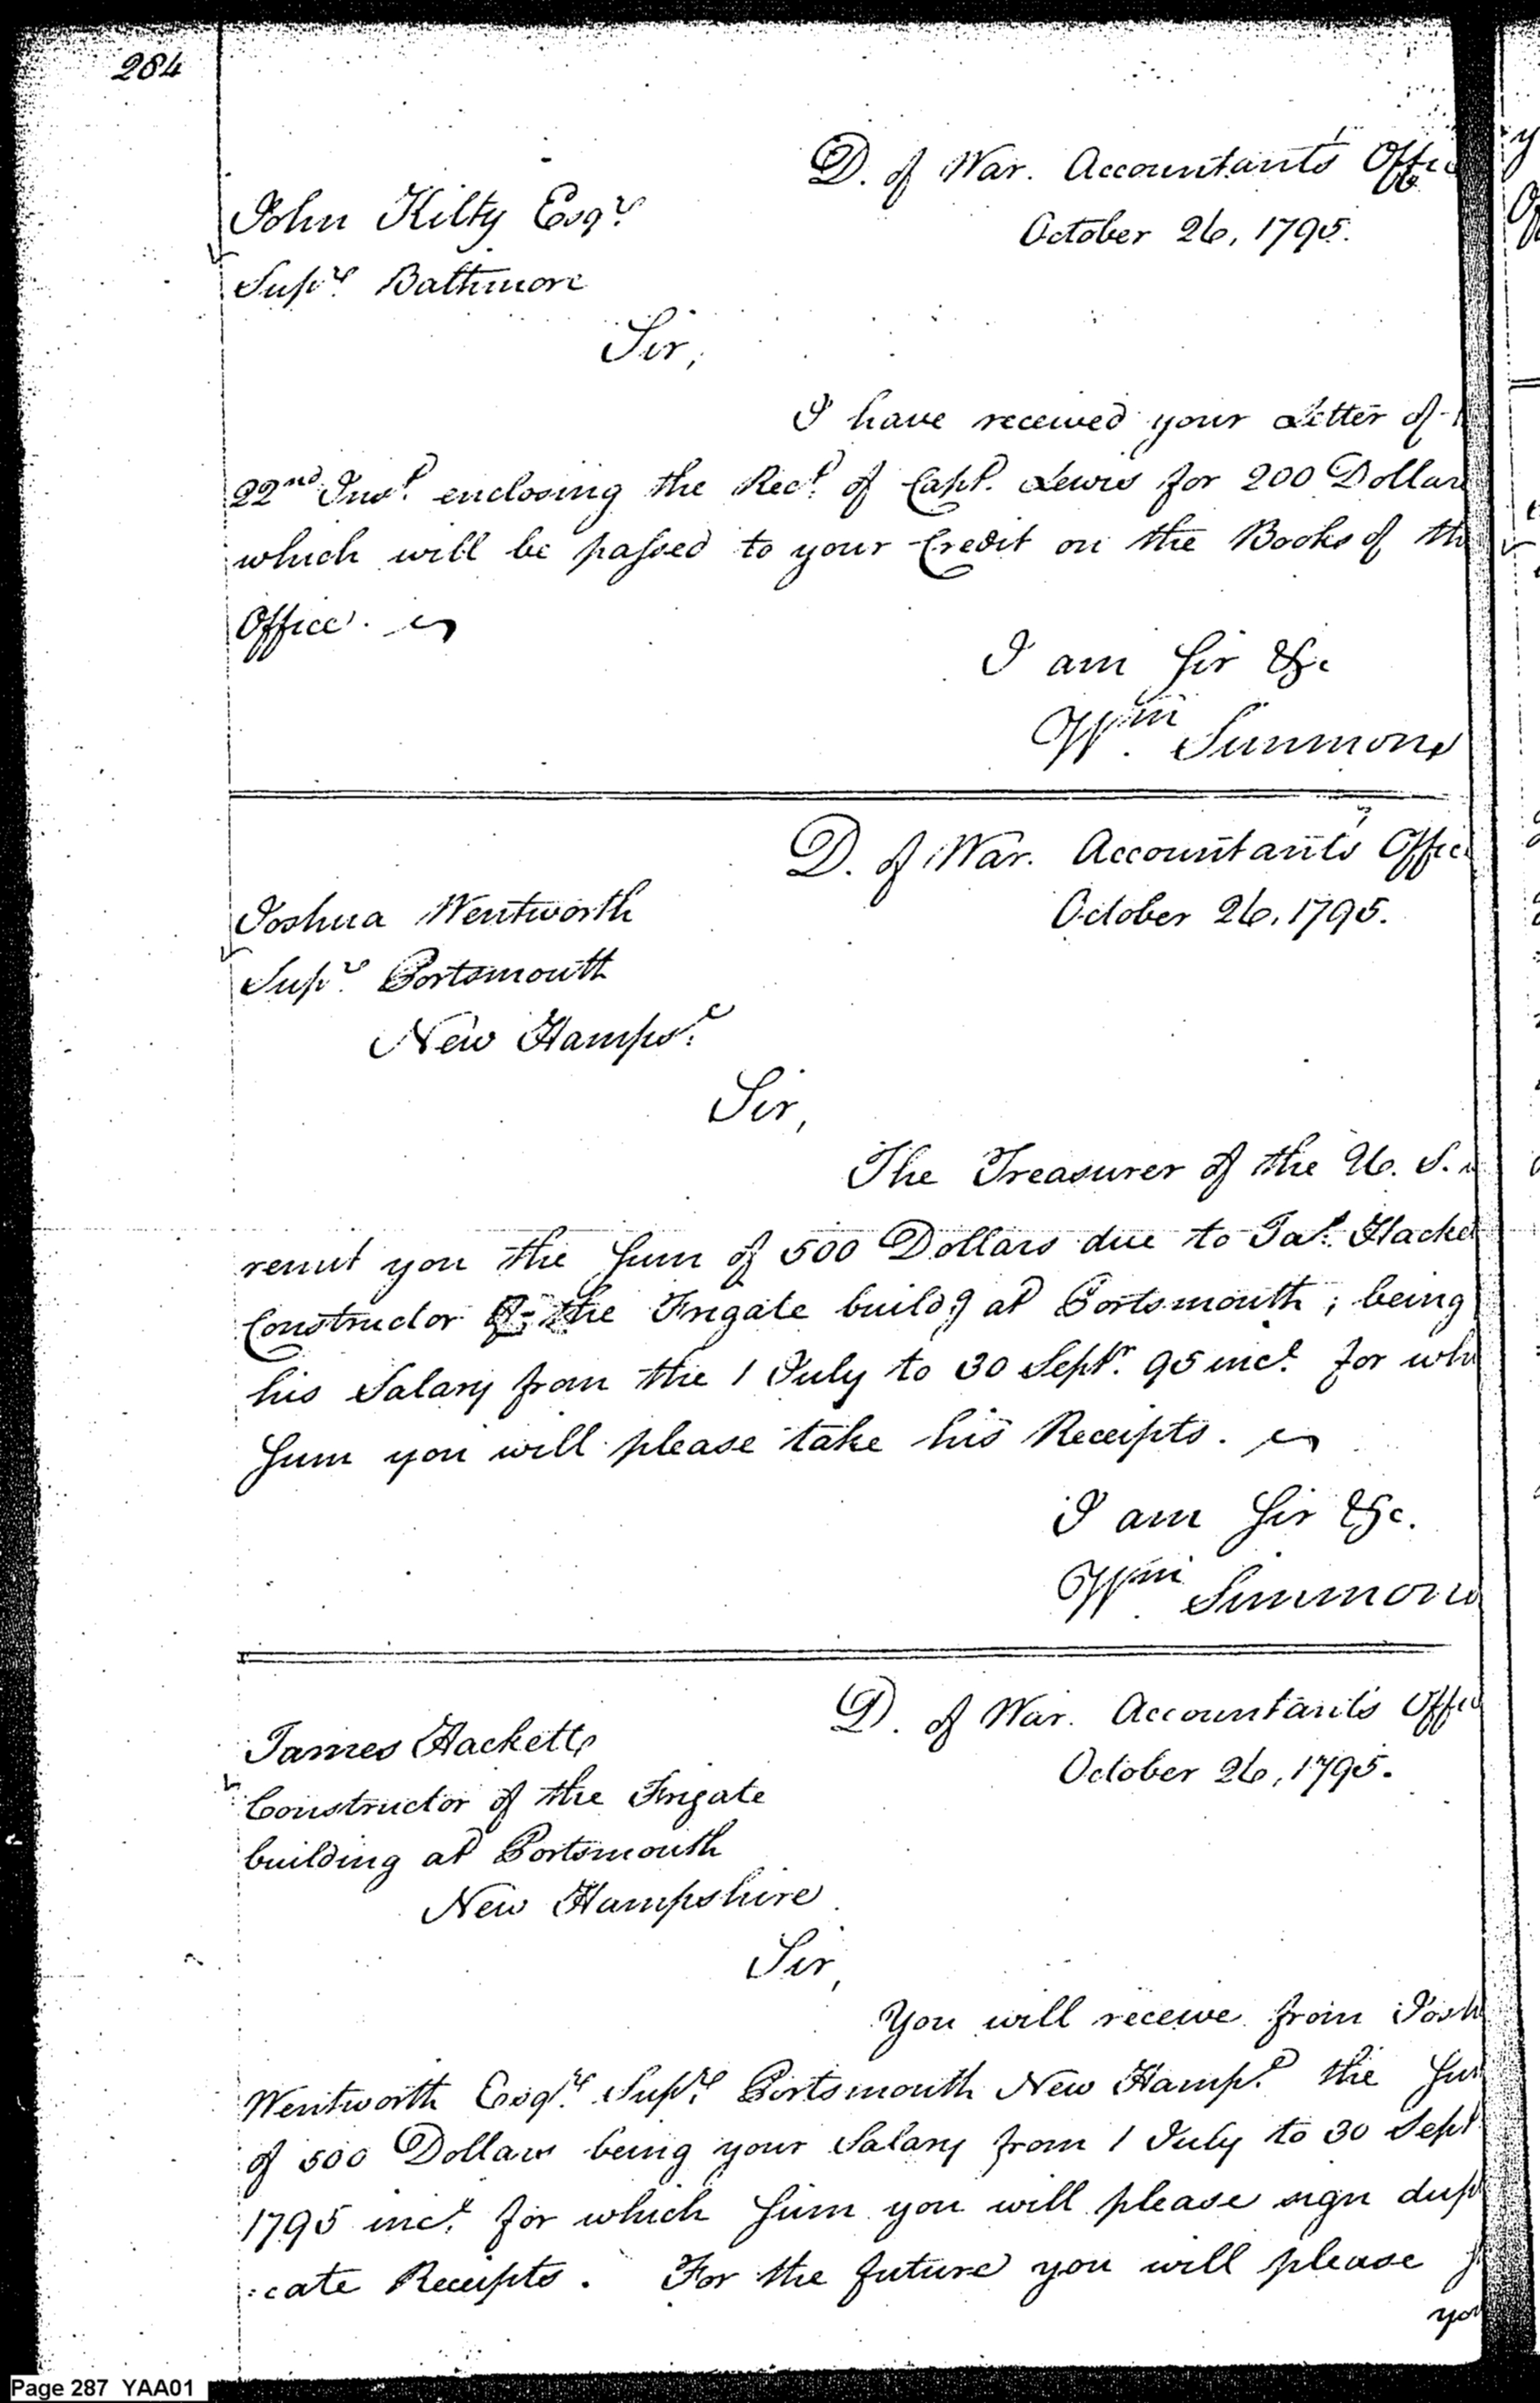 284
D. of War. Accountant's Offic
October 26, 1795.
John Kilty Esqr.
Supr. Baltimore
Sir,
I have received your Letter of
22nd Inst. enclosing the Rect. of Capt. Lewis for 200 Dollars
which will be passed to your Credit on the Books of th
Office.
I am Sir &c
Wm. Simmons
D. of War. Accountant's Offic
October 26, 1795.
Joshua Wentworth
Supr. Portsmouth
New Hampse.
Sir,
The Treasurer of the U. S.
remit you the Sum of 500 Dollars due to Jas. Hacket
Constructor of the Frigate buildg at Portsmouth; being
his Salary from the 1 July to 30 Septr. 95 incl. for whi
Sum you will please take his Receipts.
I am Sir &c.
Wm. Simmons
D. of War. Accountant's Offic
October 26, 1795.
James Hackett
Constructor of the Frigate
building at Portsmouth
New Hampshire
Sir,
You will receive from Josh
Wentworth Esqr. Supr. Portsmouth New Hampe. the Sum
of 500 Dollars being your Salary from 1 July to 30 Sept
1795 incl. for which Sum you will please sign dupl
:cate Receipts. For the future you will please
you
Page 287 YAA01